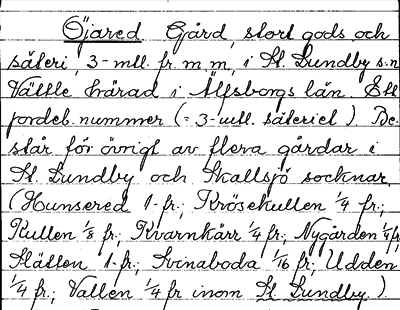 Öjared Gård, stort gods och
säteri, 3-mtl. fr m.m, i St. Lundby s:n
Vättle härad i Älfsborgs län. Ett
jordeb.nummer (= 3-mtl. säteriet). Be-
står för övrigt av flera gårdar i
St. Lundby och Skallsjö socknar.
(Hunsered 1-fr.; Krösekullen 1/4 fr.;
Kullen 1/8 fr.; Kvarnkärr 1/4 fr.; Nygården 1/4 fr;
Slätten 1-fr; Svinaboda 1/16 fr; Udden
1/4 fr.; Vallen 1/4 fr inom St. Lundby.)